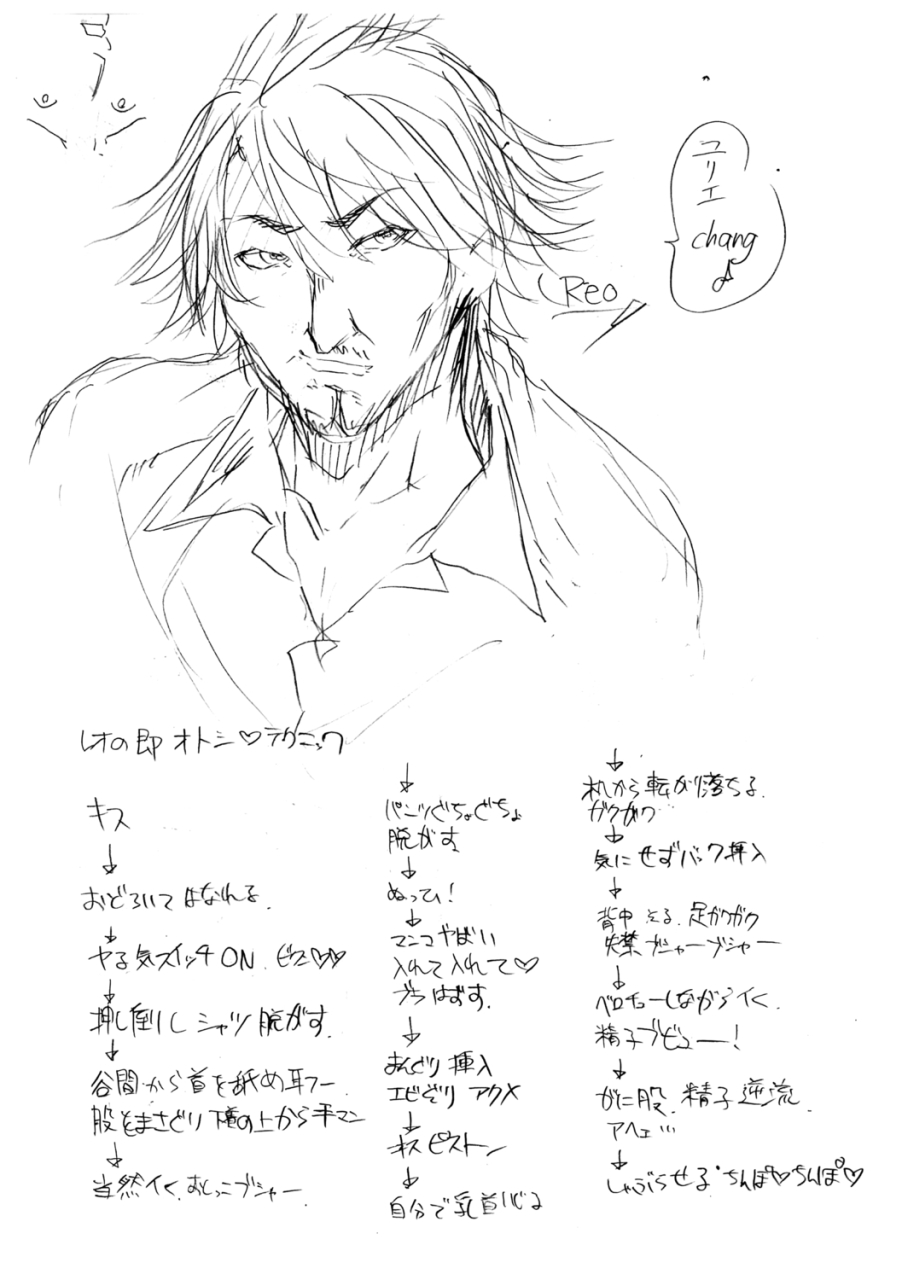 ユリエ
chang♪
Reo
レオの即オトシ♡テクニック
キス
↓
おどろいてはなれる.
↓
ヤる気スイッチON. ビクン♡♡
↓
押し倒し シャツ脱がす.
↓
谷間から首を舐め耳フー
股をまさぐり 下着の上から手マン
↓
当然イく. おしっこブシャー
↓
パンツぐちょぐちょ
脱がす.
↓
ぬってひ!
↓
マンコやばい
入れて入れて♡
ブラはずす.
↓
まんぐり挿入
エビぞり アクメ
↓
↓
自分で乳首いじる
↓
転がり落ちる.
ガクガク
↓
気にせずバック挿入
↓
背中 足ガクガク
失禁ブシャーブシャー
↓
ベロチューしながらイく.
精子ブビュー!
↓
がに股. 精子逆流.
アヘェ…
↓
しゃぶらせる・ちんぽ♡ちんぽ♡